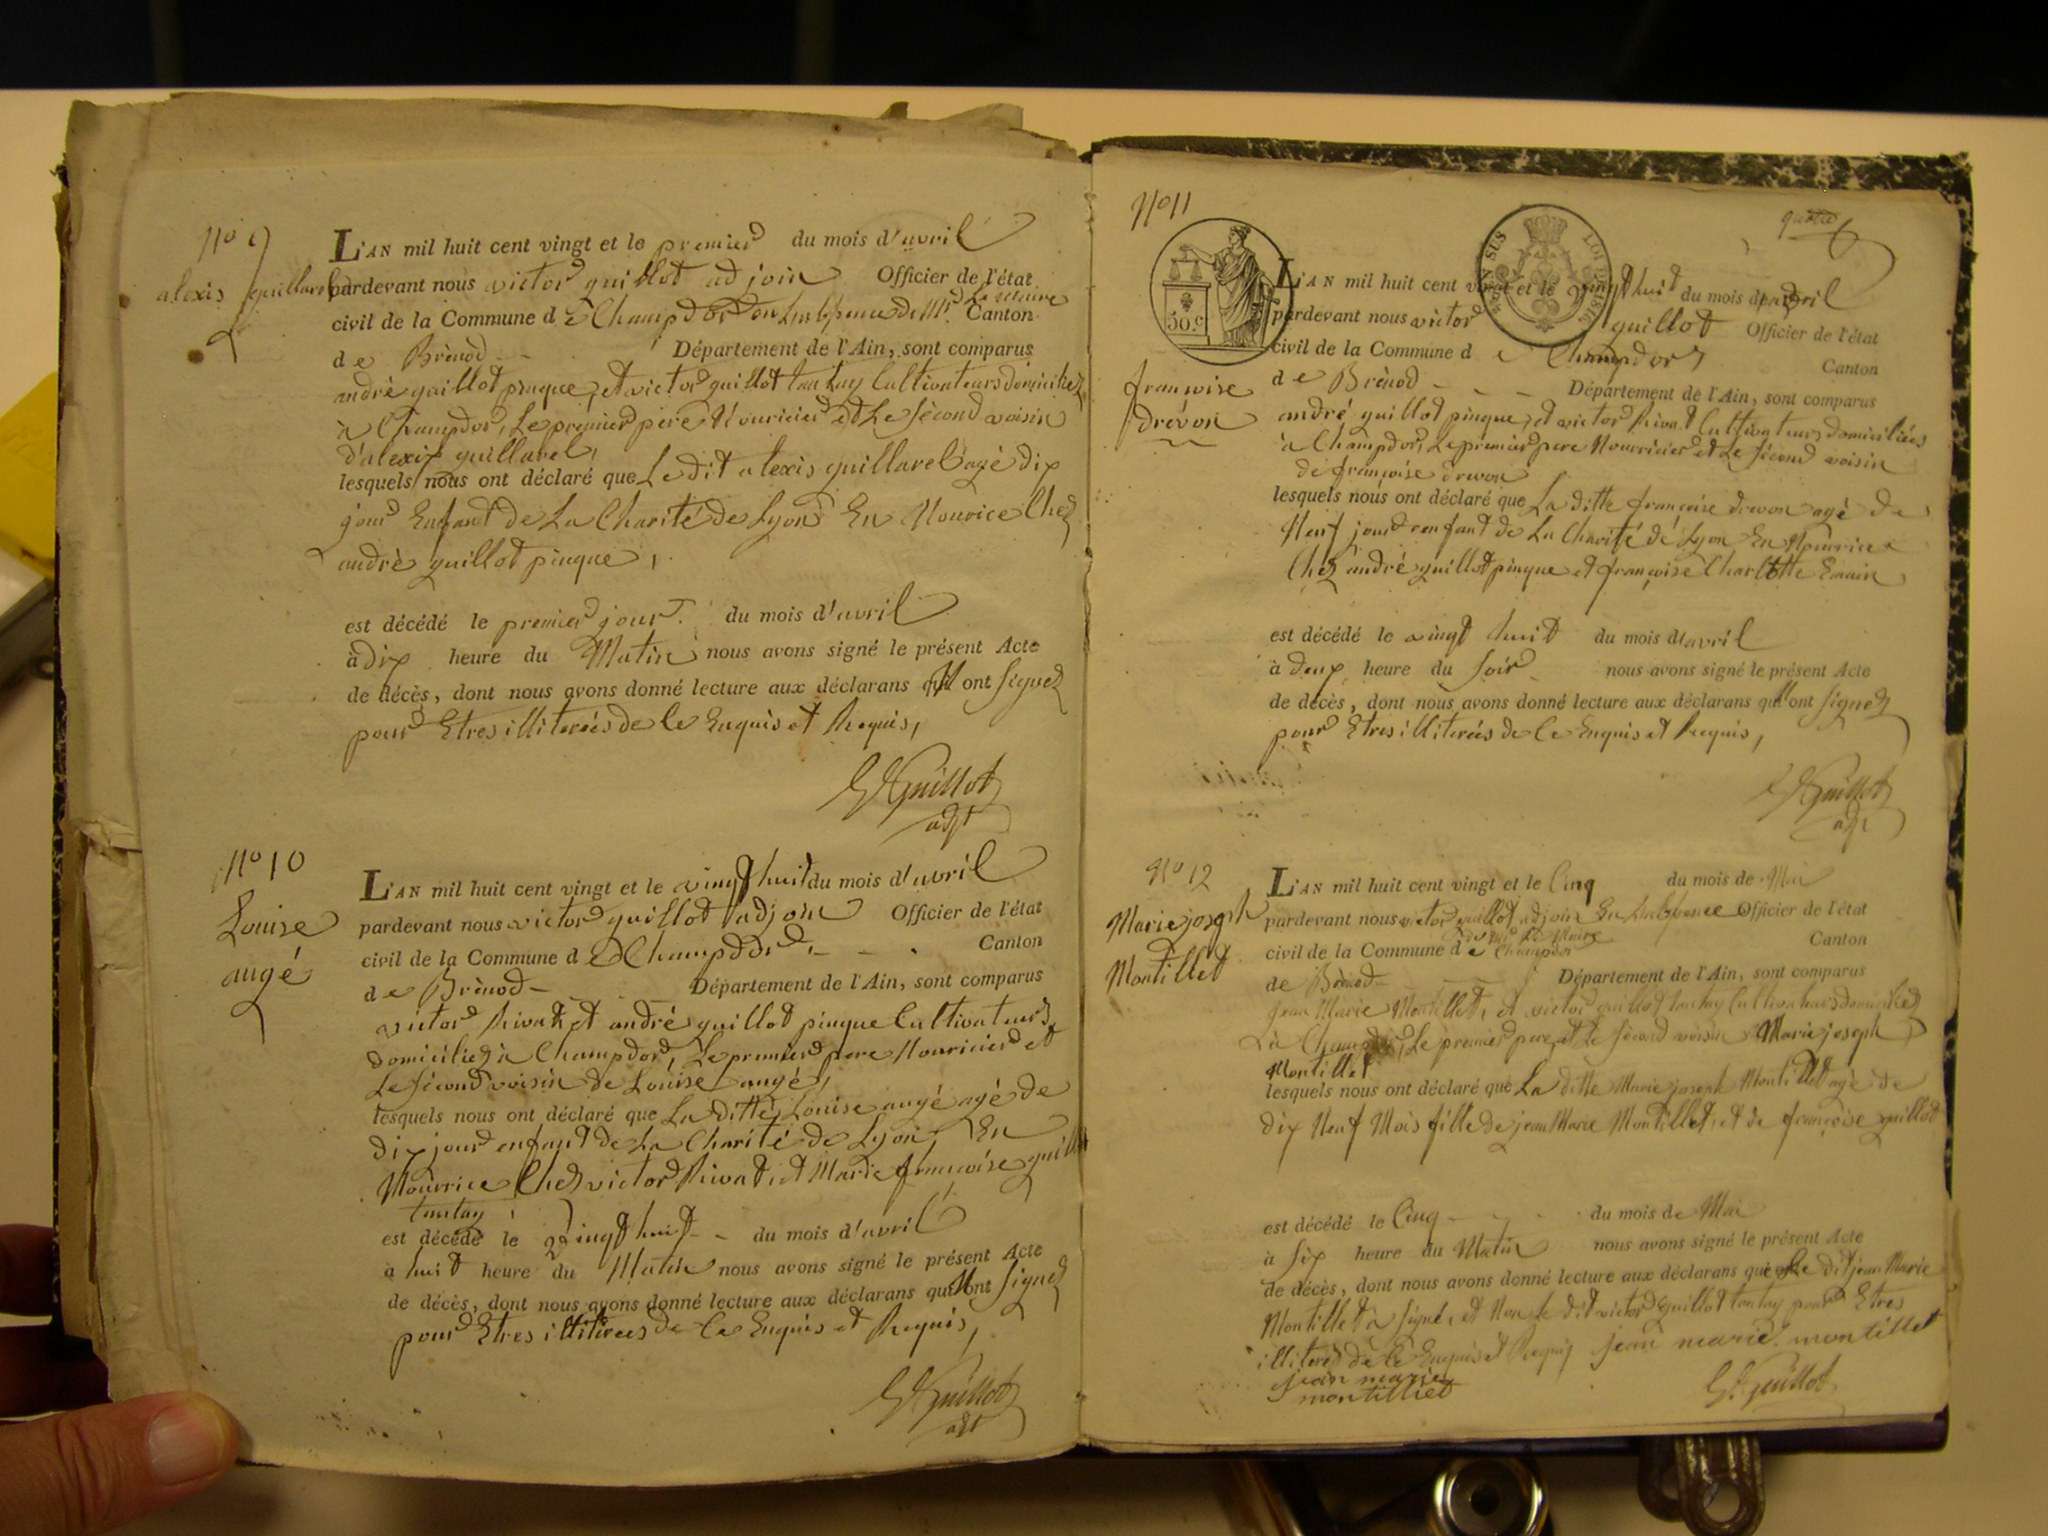 N° 9
alexis guillarel
L'AN mil huit cent vingt et le premier du mois d'avril
pardevant nous victor guillot adjoin Officier de l'état
civil de la Commune de Champdor en Labsence de Mr. Le Maire Canton
de Brènod Département de l'Ain, sont comparus
andré guillot pinque, et victor guillot tantay Cultivateurs domiciliez
à Champdor, Le premier pere Nouricier et Le sécond voisin
d'alexis guillarel,
lesquels nous ont déclaré que Le dit alexis guillarel agé dix
jour Enfant de La Charité de Lyon En Nourice Chez
andré guillot pinque,
est décédé le premier jour du mois d'avril
à dix heure du Matin nous avons signé le présent Acte
de décès, dont nous avons donné lecture aux déclarans qui N ont signez
pour Etres illiterées de Ce Enquis et Requis,
Guillot
adjt
N° 10
Louise
augé
L'AN mil huit cent vingt et le vingt huit du mois d'avril
pardevant nous victor guillot adjoin Officier de l'état
civil de la Commune de Champdor, Canton
de Brènod Département de l'Ain, sont comparus
victor Rivat et andré guillot pinque Cultivateurs
domiciliez à Champdor, Le premier pere Nouricier et
Le sécond voisin de Louise augé,
lesquels nous ont déclaré que La ditte Louise augé agé de
dix jour enfant de La Charité de Lyon, En
Nourrice Chez victor Rivat, et Marie françoise guillot
tantay,
est décédé le vingt huit du mois d'avril
à huit heure du Matin nous avons signé le présent Acte
de décès, dont nous avons donné lecture aux déclarans qui N ont signez
pour Etres illiterées de Ce Enquis et Requis,
Guillot
adjt
N° 11
50 c
SUS LOI 1816
françoise
drévon
L'AN mil huit cent vingt et le vingt huit du mois d'avril
pardevant nous victor guillot Officier de l'état
civil de la Commune de Champdor Canton
de Brènod Département de l'Ain, sont comparus
andré guillot pinque, et victor Rivat Cultivateurs domiciliées
à Champdor, Le premier pere Nourricier et Le sécond voisin
de françoise drevon
lesquels nous ont déclaré que La ditte françoise drevon agé de
Neuf jour enfant de La Charité de Lyon En Nourrice
Chez andré guillot pinque et françoise Charlotte
est décédé le vingt huit du mois d'avril
à deux heure du soir nous avons signé le présent Acte
de décès, dont nous avons donné lecture aux déclarans qui N ont signez
pour Etres illiterées de Ce Enquis et Requis,
Guillot
adjt
N° 12
Marie joseph
Montillet
L'AN mil huit cent vingt et le Cinq du mois de Mai
pardevant nous victor guillot adjoin En Labsence Officier de l'état
de Mr. Le Maire
civil de la Commune de Champdor Canton
de Brènod Département de l'Ain, sont comparus
jean Marie Montillet, et victor guillot tantay Cultivateurs domiciliez
à Champdor, Le premier pere, et Le sécond voisin Marie joseph
Montillet
lesquels nous ont déclaré que La ditte Marie joseph Montillet agé de
dix Neuf Mois fille de jean Marie Montillet, et de françoise guillot
est décédé le Cinq du mois de Mai
à six heure du Matin nous avons signé le présent Acte
de décès, dont nous avons donné lecture aux déclarans que Le dit jean Marie
Montillet a signé, et Non le dit victor guillot tantay pour Etres
illiteré de Ce Enquis et Requis jean marie montillet
jean marie
montilliet
Guillot